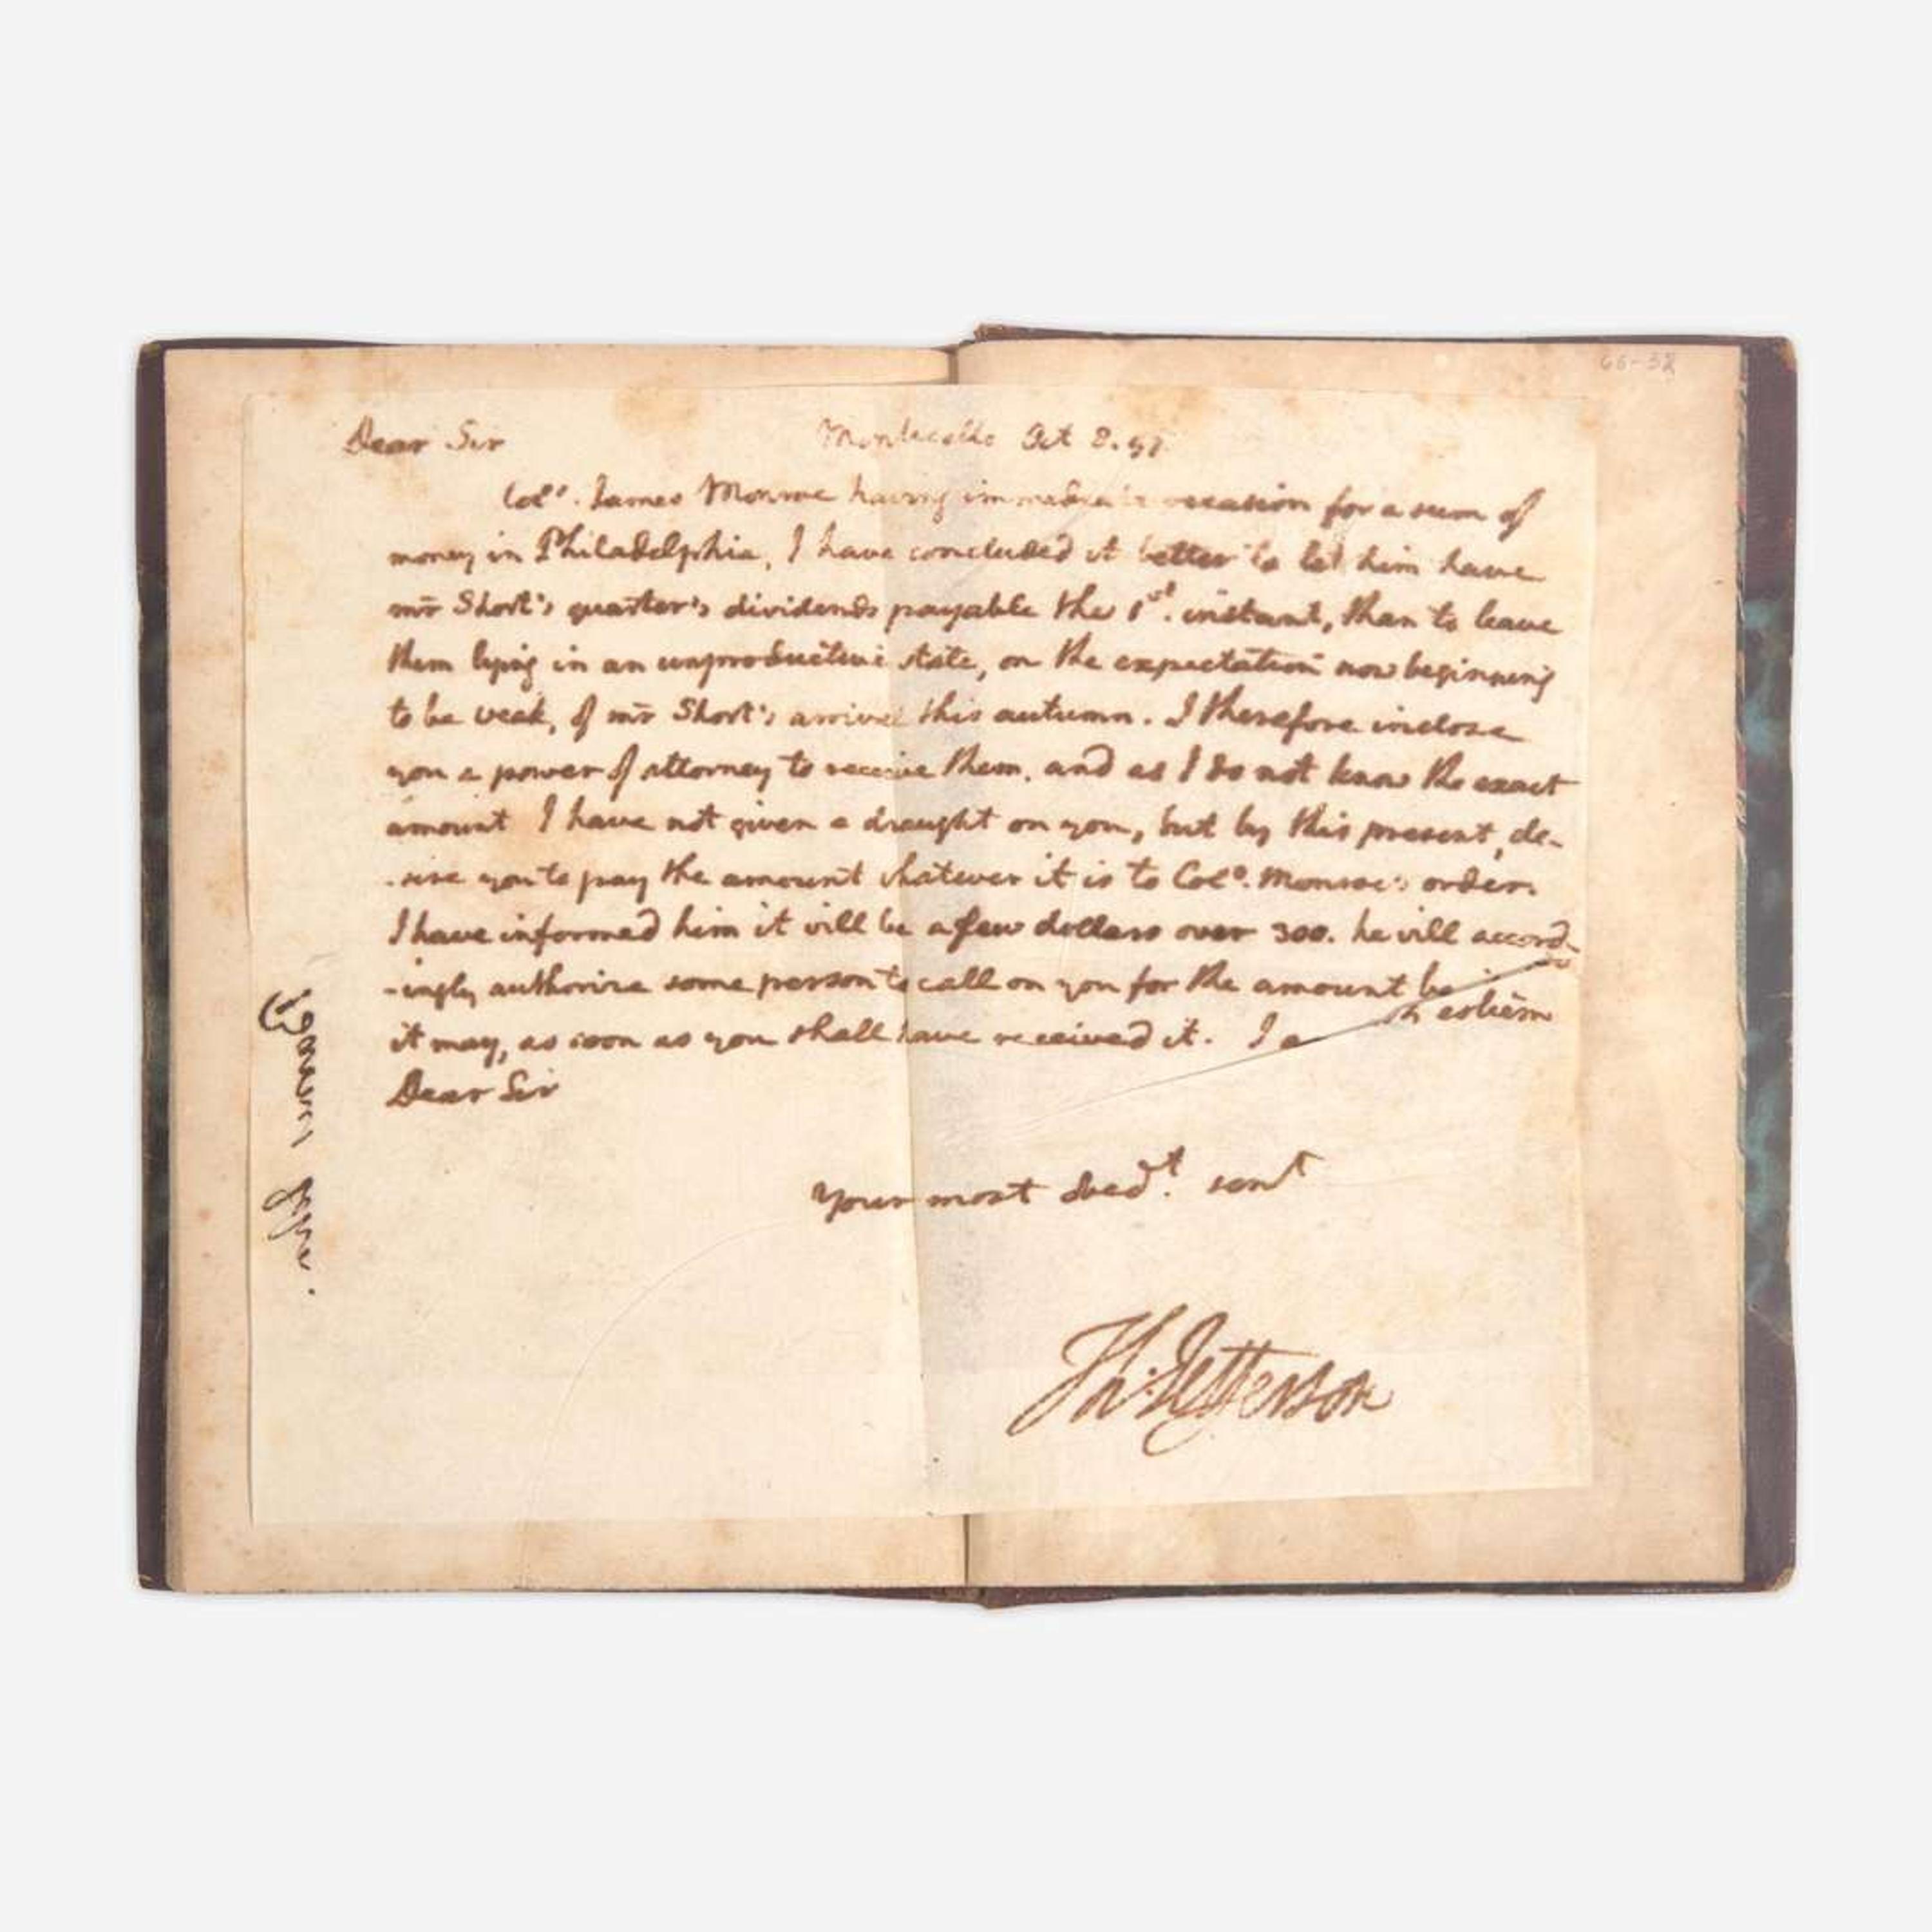 66-38
Dear Sir Monticello Oct 8. 97.
Colo. James Monroe having immediate occasion for a sum of
money in Philadelphia, I have concluded it better to let him have
mr Short's quarter's dividends payable the 1st. instant, than to leave
them lying in an unproductive state, on the expectation now beginning
to be weak, of mr Short's arrival this autumn. I therefore inclose
you a power of attorney to receive them. and as I do not know the exact
amount I have not given a draught on you, but by this present, de-
-sire you to pay the amount whatever it is to Colo. Monroe's order.
I have informed him it will be a few dollars over 300. he will accord-
-ingly authorize some person to call on you for the amount be
it may, as soon as you shall have received it. I a esteem
Dear Sir
Your most obedt. servt
Th: Jefferson